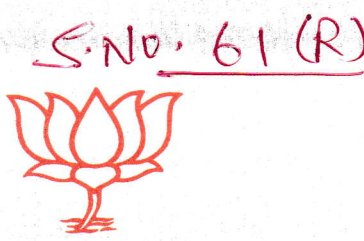 S.No. 61 (R)